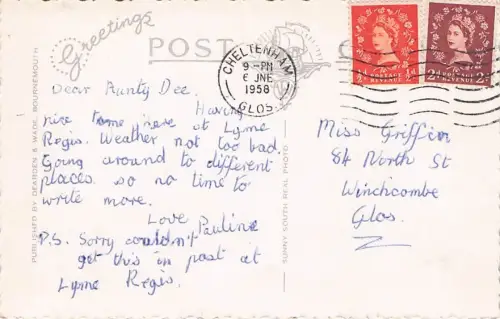 Greetings
POST
CHELTENHAM
9-PM
6 JNE
1958
GLOS.
½d POSTAGE REVENUE ½d
2d POSTAGE REVENUE 2d
PUBLISHED BY DEARDEN & WADE, BOURNEMOUTH
Dear Aunty Dee.
Having
nice time here at Lyme
Regis. Weather not too bad.
Going around to different
places so no time to
write more.
Love Pauline
P.S. Sorry couldn't
get this in post at
Lyme Regis.
SUNNY SOUTH REAL PHOTO
Miss Griffin
84 North St
Winchcombe
Glos.